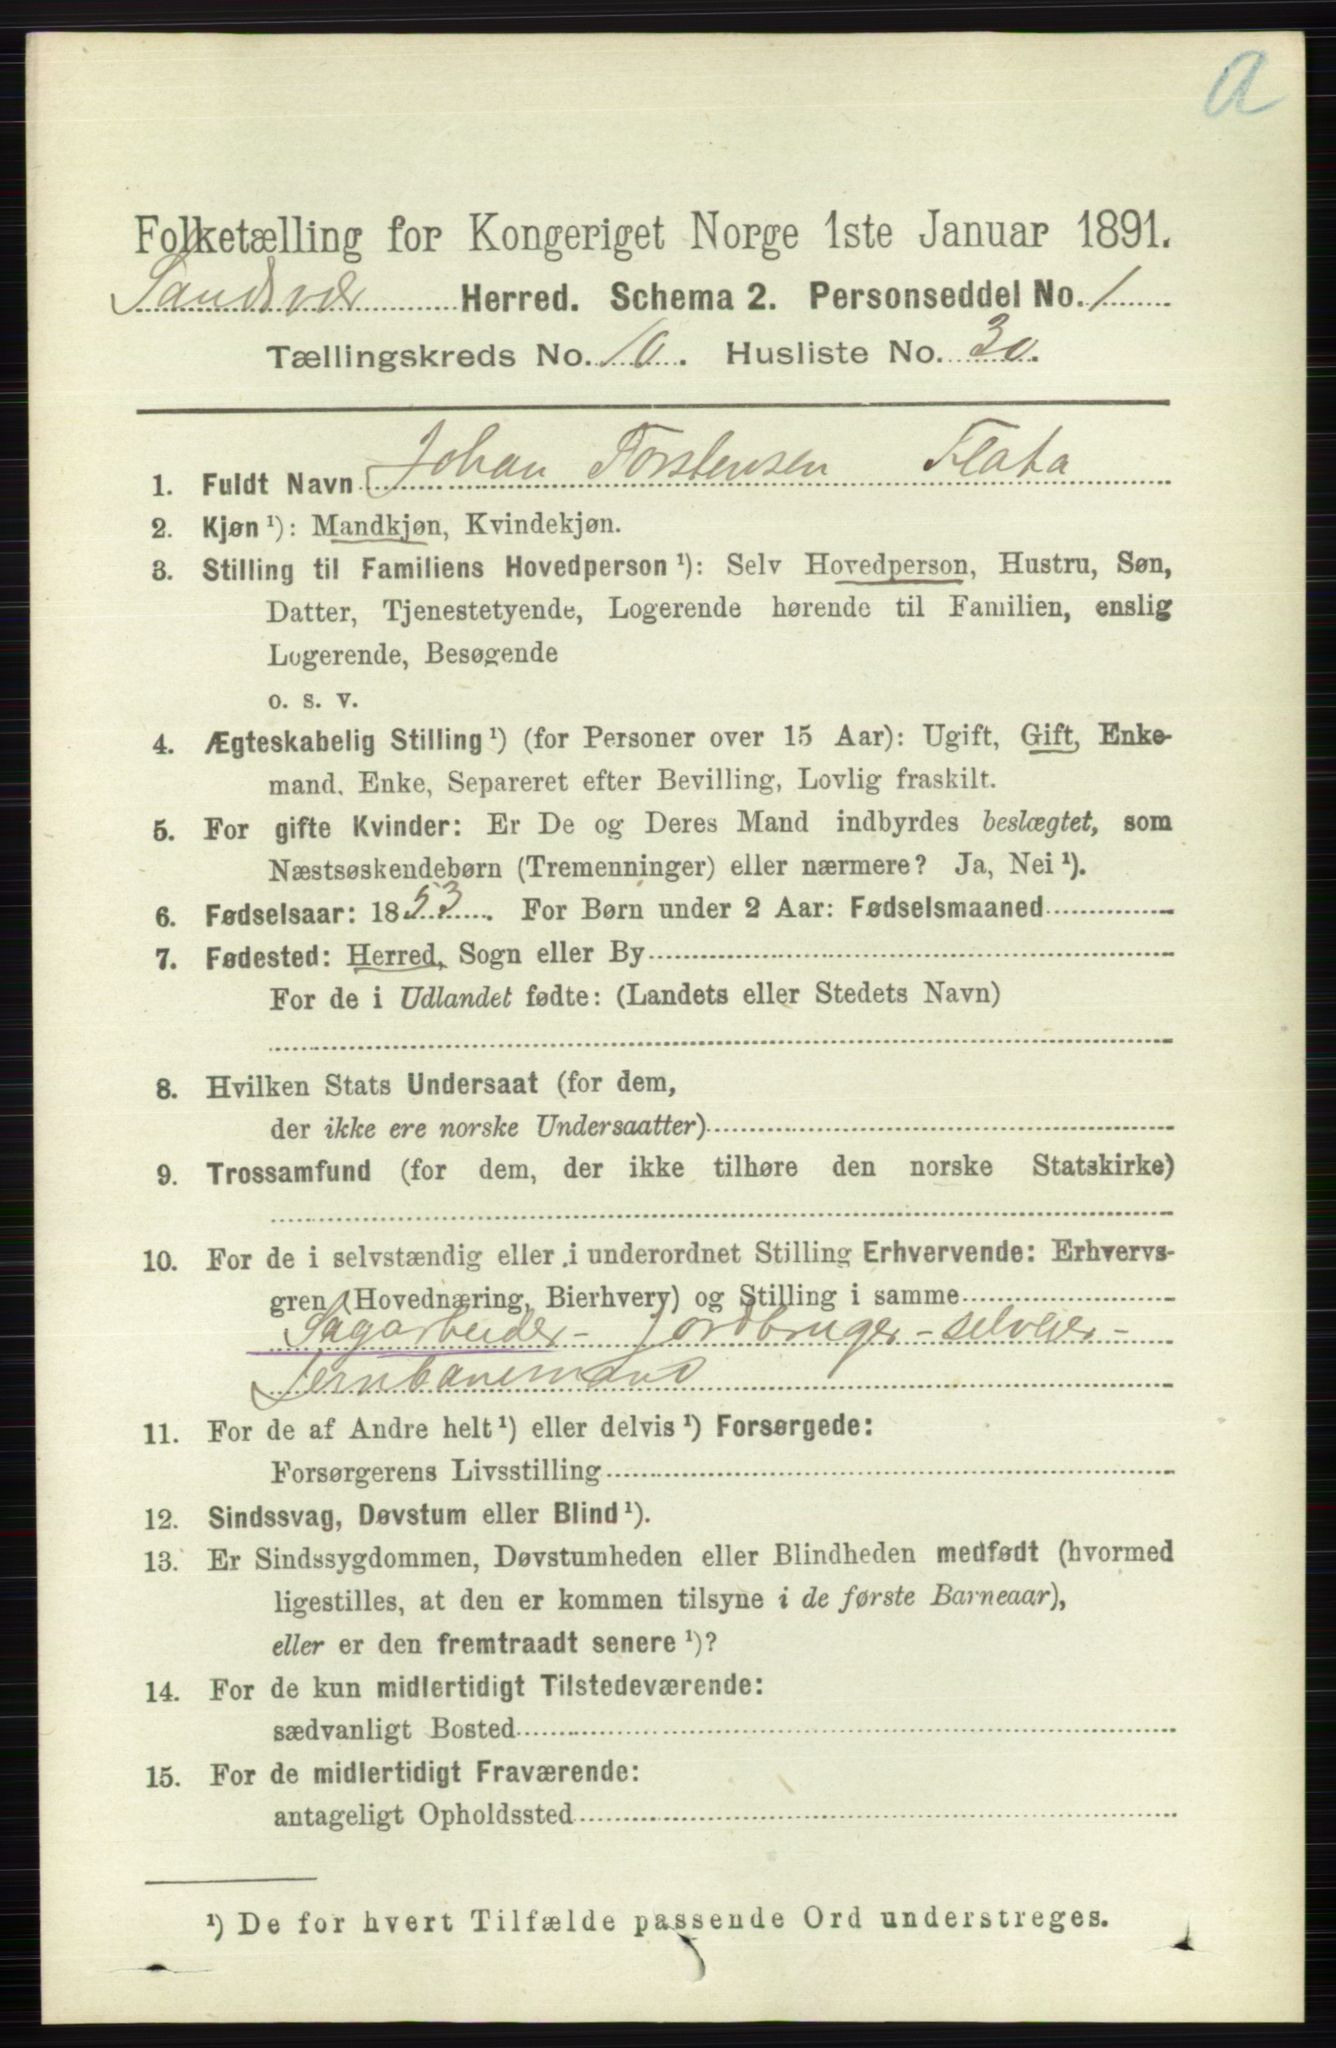 a
Folketælling for Kongeriget Norge 1ste Januar 1891.
Sandsvær Herred. Schema 2. Personseddel No. 1
Tællingskreds No. 10. Husliste No. 30.
1. Fuldt Navn Johan Torstensen Flata
2. Kjøn ¹): Mandkjøn, Kvindekjøn.
3. Stilling til Familiens Hovedperson ¹): Selv Hovedperson, Hustru, Søn,
Datter, Tjenestetyende, Logerende hørende til Familien, enslig
Logerende, Besøgende
o. s. v.
4. Ægteskabelig Stilling ¹) (for Personer over 15 Aar): Ugift, Gift, Enke-
mand. Enke, Separeret efter Bevilling, Lovlig fraskilt.
5. For gifte Kvinder: Er De og Deres Mand indbyrdes beslægtet, som
Næstsøskendebørn (Tremenninger) eller nærmere? Ja, Nei ¹).
6. Fødselsaar: 1853. For Børn under 2 Aar: Fødselsmaaned
7. Fødested: Herred, Sogn eller By
For de i Udlandet fødte: (Landets eller Stedets Navn)
8. Hvilken Stats Undersaat (for dem,
der ikke ere norske Undersaatter)
9. Trossamfund (for dem, der ikke tilhøre den norske Statskirke)
10. For de i selvstændig eller i underordnet Stilling Erhvervende: Erhvervs-
gren (Hovednæring, Bierhverv) og Stilling i samme
Sagarbeider - Jordbruger - selveier -
Jernbanemand
11. For de af Andre helt ¹) eller delvis ¹) Forsørgede:
Forsørgerens Livsstilling
12. Sindssvag, Døvstum eller Blind ¹).
13. Er Sindssygdommen, Døvstumheden eller Blindheden medfødt (hvormed
ligestilles, at den er kommen tilsyne i de første Barneaar),
eller er den fremtraadt senere ¹)?
14. For de kun midlertidigt Tilstedeværende:
sædvanligt Bosted
15. For de midlertidigt Fraværende:
antageligt Opholdssted
¹) De for hvert Tilfælde passende Ord understreges.